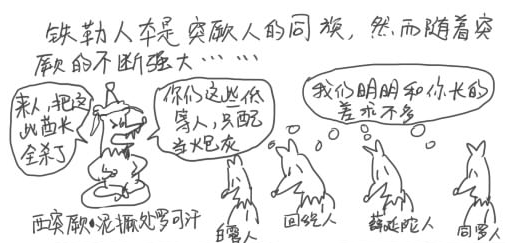 铁勒人本是突厥人的同族，然而随着突
厥的不断强大……
来人，把这
些酋长
全杀了
你们这些低
等人，只配
当炮灰
我们明明和你长的
差不多
西突厥·泥撅处罗可汗
白霫人
回纥人
薛延陀人
同罗人